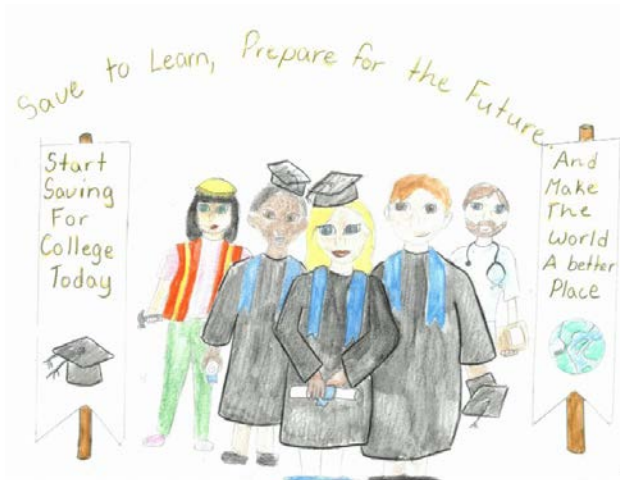 Save to Learn, Prepare for the Future.
Start
Saving
For
College
Today
And
Make
The
World
A better
Place